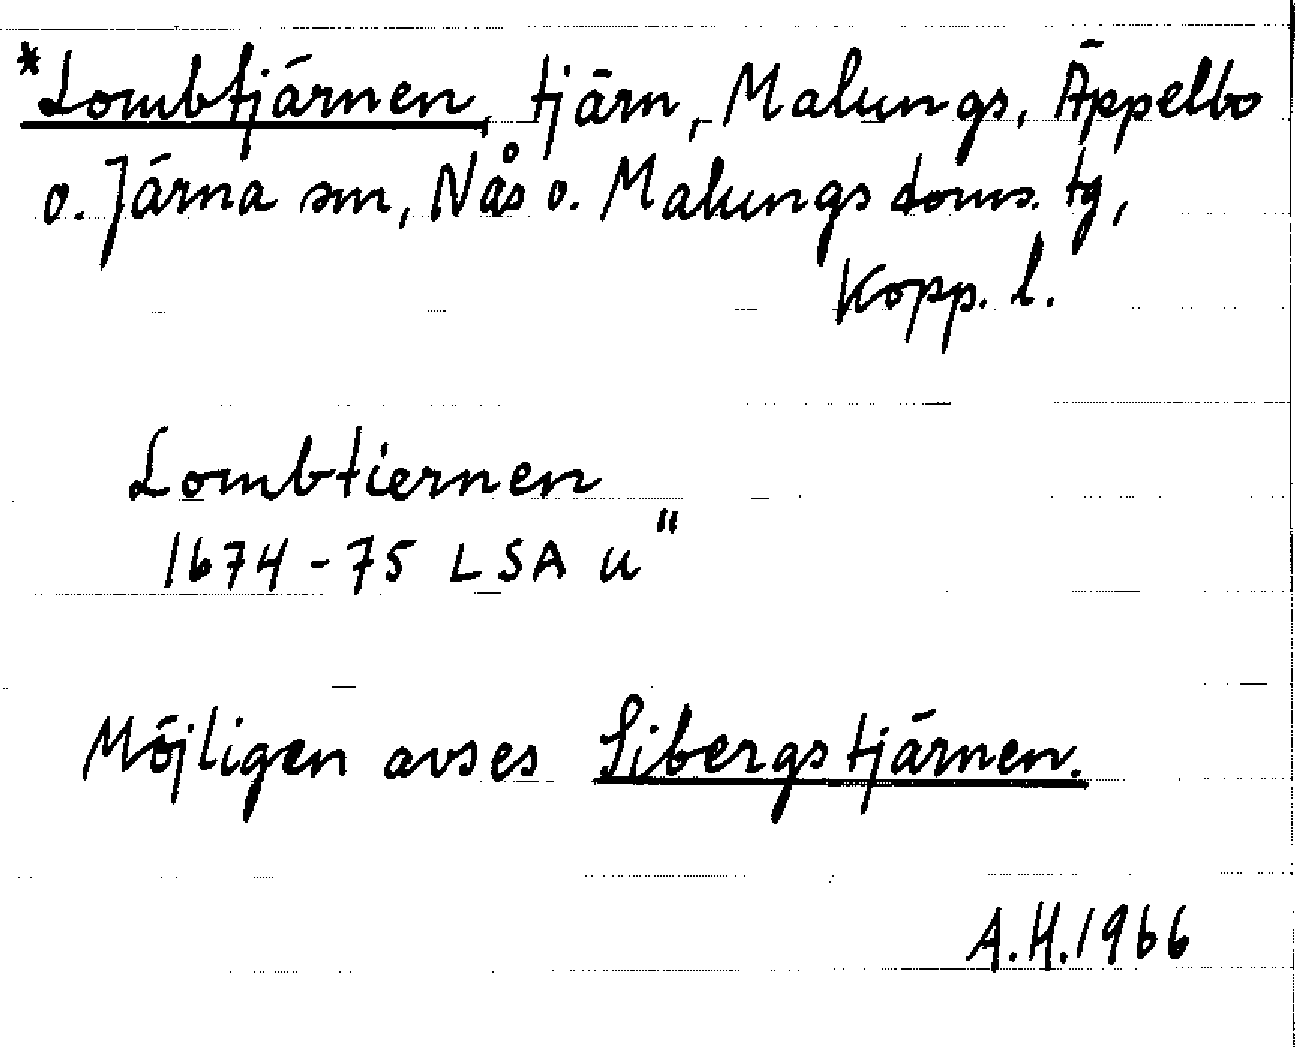 *Lombtjärnen, tjärn, Malungs, Äppelbo
o. Järna sm, Nås o. Malungs doms. tg,
Kopp. l.
Lombtiernen
1674-75 LSA u"
Möjligen avses Sibergstjärnen.
A.H. 1966